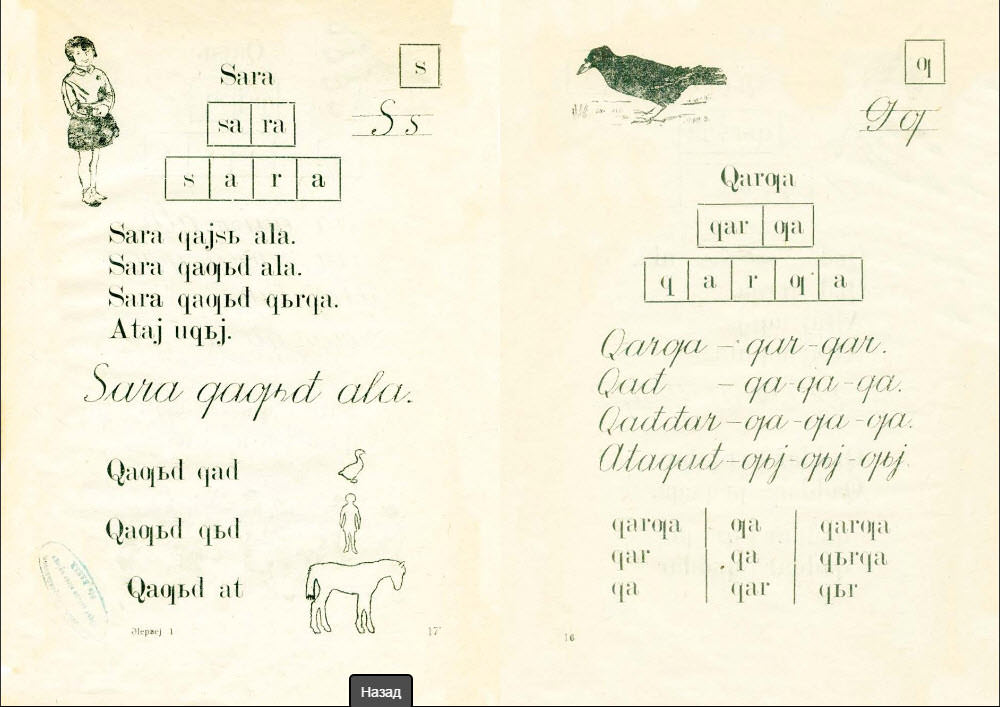 Sara
s
sa ra
S s
s a r a
Sara qajsь ala.
Sara qaƣьđ ala.
Sara qaƣьđ qьrqa.
Ataj uqьj.
Sara qaƣьđ ala.
Qaƣьđ qađ
Qaƣьđ qьđ
Qaƣьđ at
Əlepвej 1
17
ƣ
Ƣ ƣ
Qarƣa
qar ƣa
q a r ƣ a
Qarƣa – qar-qar.
Qađ – qa-qa-qa.
Qađđar – ƣa-ƣa-ƣa.
Ataqađ – ƣьj-ƣьj-ƣьj.
qarƣa ƣa qarƣa
qar qa qьrqa
qa qar qьr
16
Назад